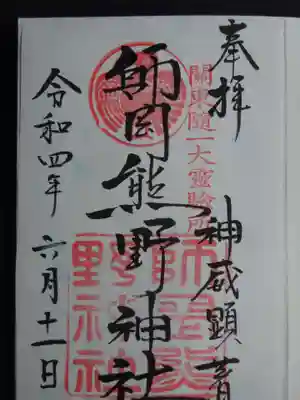 奉拝
關東随一大霊験所
神威顕育
師岡熊野神社
令和四年 六月十一日